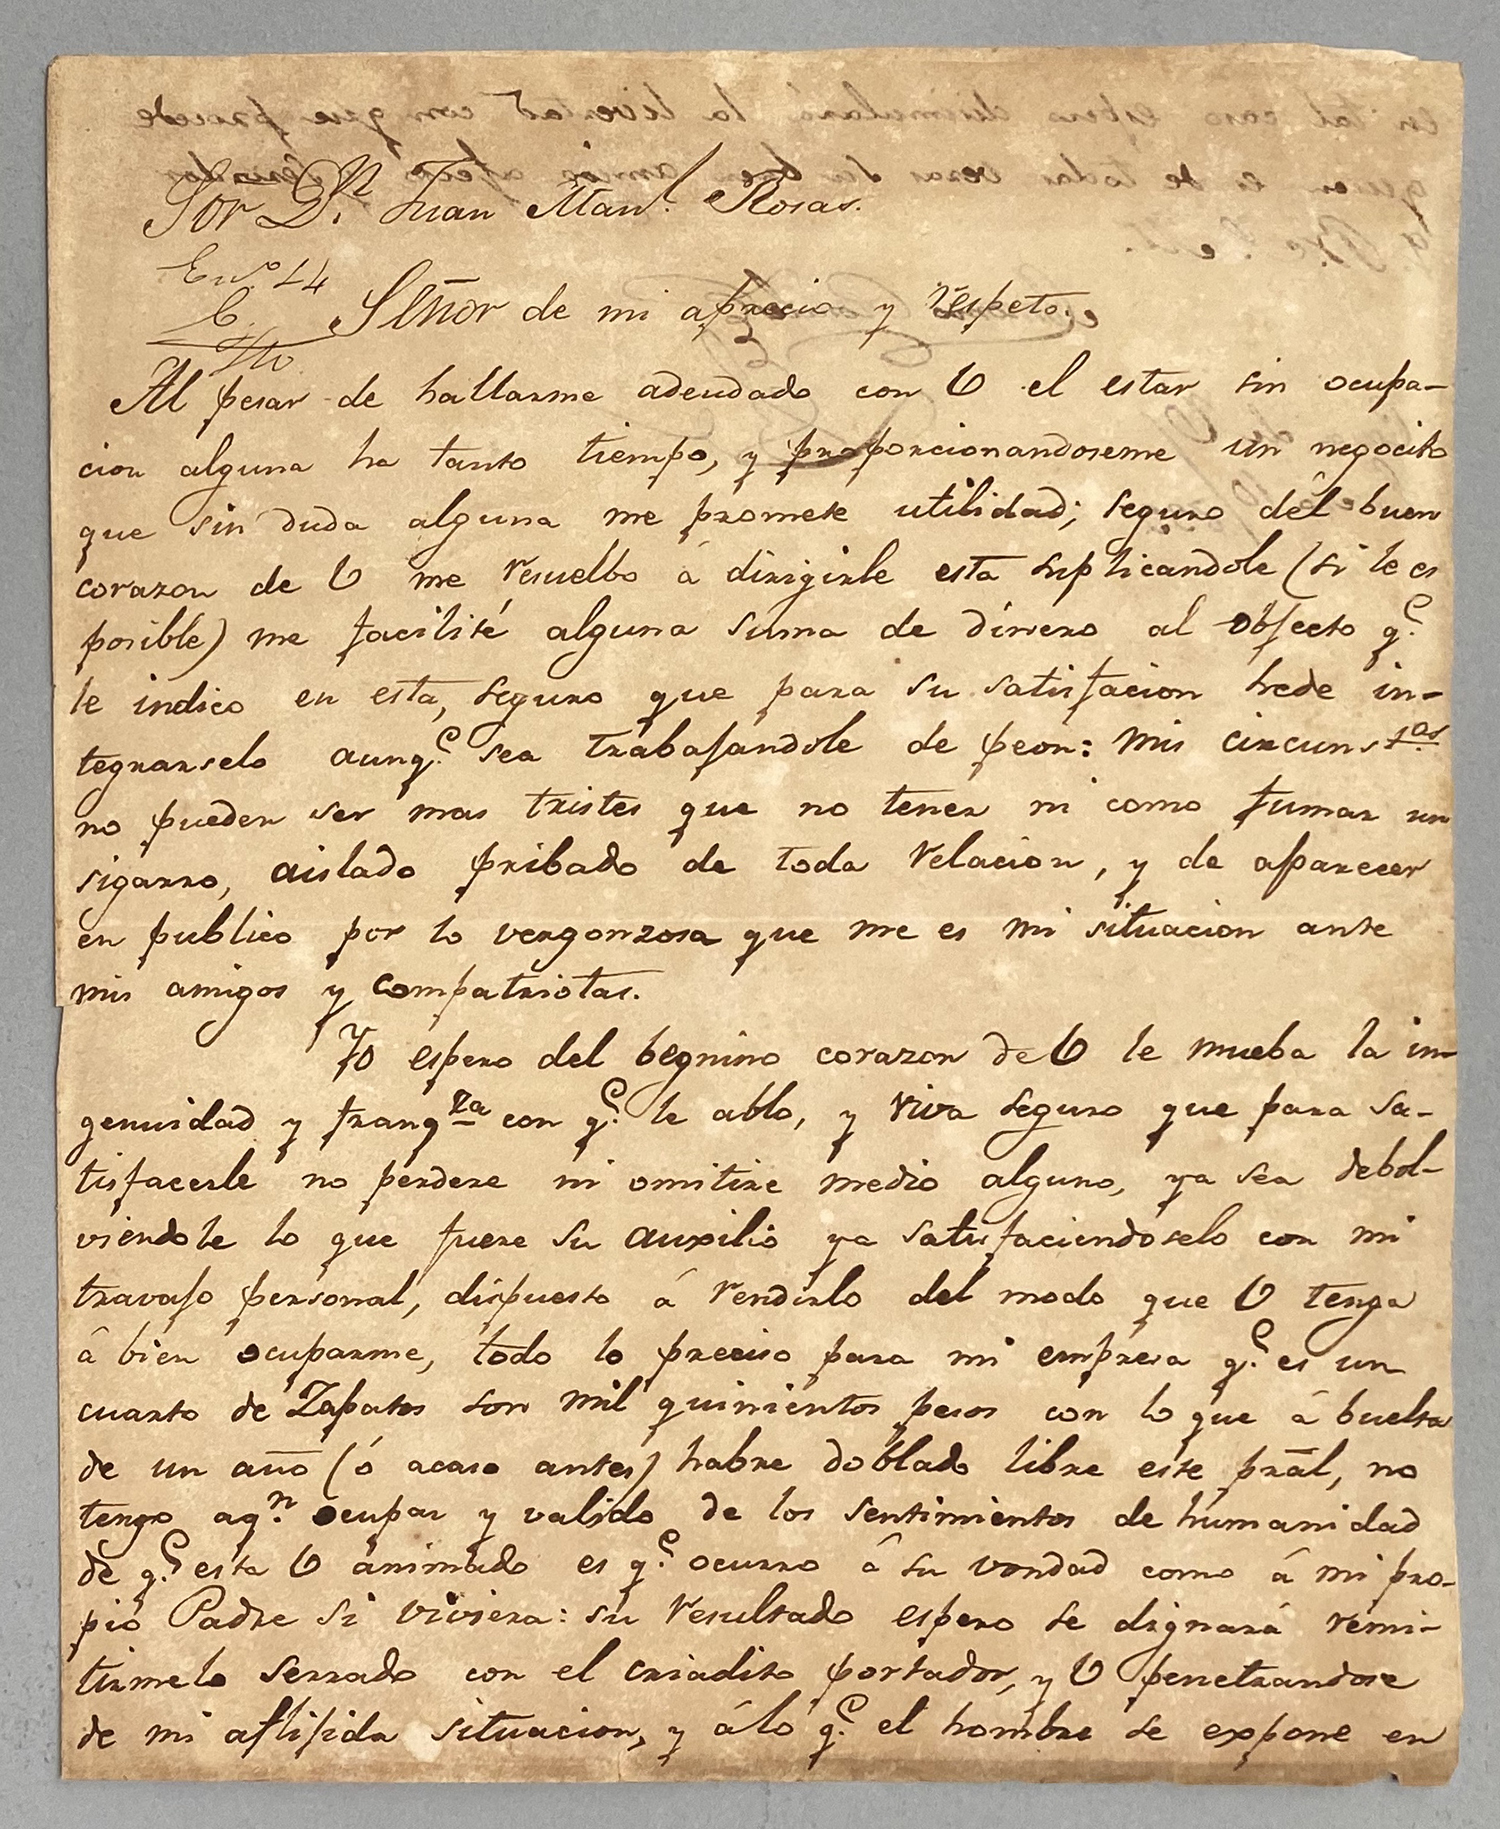 Sor Dn. Juan Manl. Rosas.
Eno. 24
Señor de mi aprecio y respeto.
Al pesar de hallarme adeudado con V el estar sin ocupa-
cion alguna ha tanto tiempo, y proporcionandoseme un negocito
que sin duda alguna me promete utilidad; seguro dél buen
corazon de V me resuelbo á dirigirle esta suplicandole (si le es
posible) me facilité alguna suma de dinero al objecto q.e
le indico en esta, seguro que para su satisfacion hede in-
tegrarselo aunq.e sea trabajandole de peon: mis circunstas
no pueden ser mas tristes que no tener ni como fumar un
sigarro, aislado pribado de toda relacion, y de aparecer
en publico por lo vergonzosa que me es mi situacion ante
mis amigos y compatriotas.
Yo espero del begnino corazon de V le mueba la in-
genuidad y franqza con q.e le ablo, y viva seguro que para sa-
tisfacerle no perdere ni omitire medio alguno, ya sea debol-
viendole lo que fuere su auxilio ya satisfaciendoselo con mi
travajo personal, dispuesto á rendirlo del modo que V tenga
á bien ocuparme, todo lo preciso para mi empresa q.e es un
cuarto de Zapatos son mil quinientos pesos con lo que á buelta
de un año (ó acaso antes) habre doblado libre este pral, no
tengo aq.n ocupar y valido de los sentimientos de humanidad
de q.e esta V animado es q.e ocurro á su vondad como á mi pro-
pio Padre si viviera: su resultado espero se dignará remi-
tirmelo serrado con el criadito portador, y V penetrandose
de mi aflijida situacion, y álo q.e el hombre se expone en